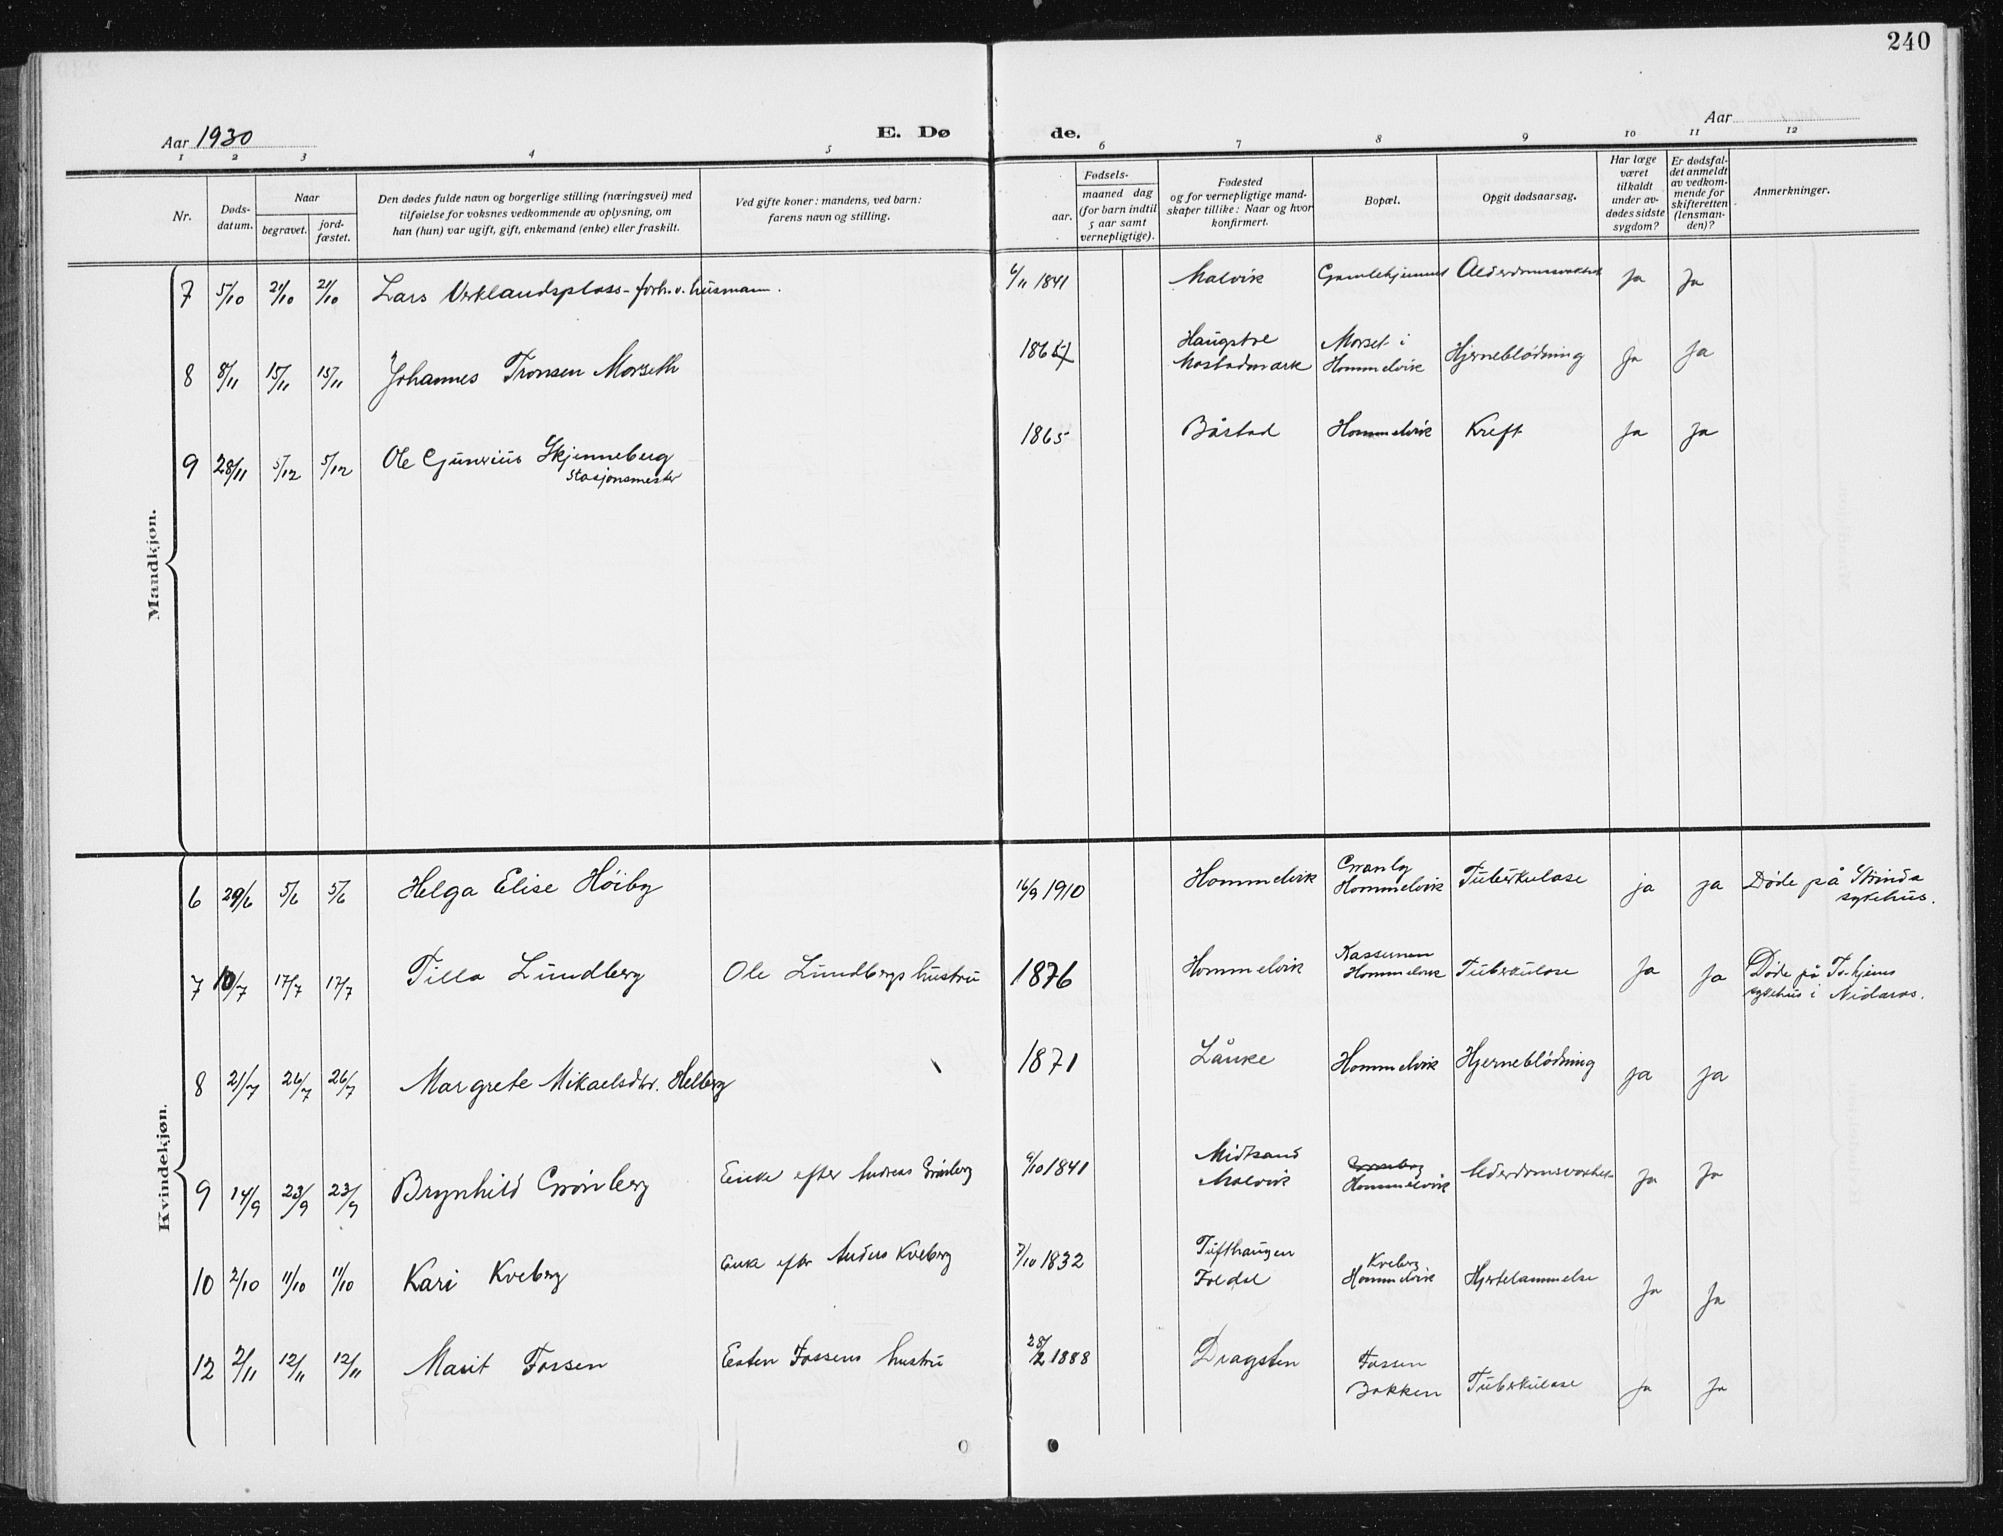 240
Aar 1930
E. Døde.
Aar
1 2 3 4 5 6 7 8 9 10 11 12
Nr.
Døds-
datum.
Naar
begravet.
jord-
fæstet.
Den dødes fulde navn og borgerlige stilling (næringsvei) med
tilføielse for voksnes vedkommende av oplysning, om
han (hun) var ugift, gift, enkemand (enke) eller fraskilt.
Ved gifte koner: mandens, ved barn:
farens navn og stilling.
Fødsels-
aar.
maaned dag
(for barn indtil
5 aar samt
vernepligtige).
Fødested
og for vernepligtige mand-
skaper tillike: Naar og hvor
konfirmert.
Bopæl.
Opgit dødsaarsag.
Har læge
været
tilkaldt
under av-
dødes sidste
sygdom?
Er dødsfal-
det anmeldt
av vedkom-
mende for
skifteretten
(lensman-
den)?
Anmerkninger.
Mandkjøn.
7 5/10 21/10 21/10 Lars Verklandsplass - forh.v. husmann. 6/11 1841 Malvik Gamlehjemmet Alderdomssvakhet Ja Ja
8 8/11 15/11 15/11 Johannes Tronsen Morseth Haugstre
Mostadmark Morset i
Hommelvik Hjerneblödning Ja Ja
9 28/11 5/12 5/12 Ole Gunerius Skjenneberg
Stasjonsmester 1865 Båstad Hommelvik Kreft Ja Ja
Kvindekjøn.
6 29/6 5/6 5/6 Helga Elise Höiby 16/9 1910 Hommelvik Granby
Hommelvik Tuberkulose ja ja Döde på Strinda
sykehus.
7 10/7 17/7 17/7 Tilla Lundberg Ole Lundbergs hustru 1876 Hommelvik Kassernen
Hommelvik Tuberkulose Ja Ja Döde på
sykehus i Nidaros.
8 21/7 26/7 26/7 Margrete Mikaelsdtr. Helberg 1871 Lånke Hommelvik Hjerneblödning ja ja
9 14/9 23/9 23/9 Brynhild Grönberg Enke efter Andreas Grönberg 6/10 1841 Midtsand
Malvik
Hommelvik Alderdomssvakhet Ja Ja
10 2/10 11/10 11/10 Kari Kveberg Enke efter Anders Kveberg 7/10 1832 Tufthaugen
Foldal Kveberg
Hommelvik Hjertelammelse Ja Ja
12 2/11 12/11 12/11 Marit Fossen Esten Fossens hustru 28/2 1888 Dragsten Fossen
Bakken Tuberkulose Ja Ja